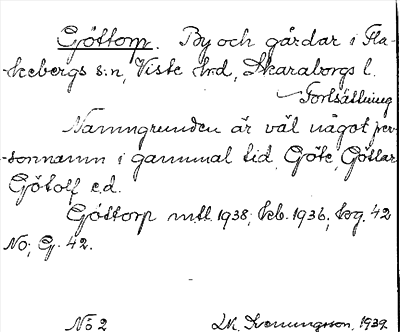 Göttorp. By och gårdar i Fla-
kebergs s:n, Viste hrd, Skaraborgs l.
Fortsättning
Namngrunden är väl något per-
sonnamn i gammal tid, Göte, Göttar
Götolf e.d.
Göttorp mtl. 1938; Keb. 1936; hrg. 42
NO; G. 42.
No 2 D.K. Svenungsson, 1939